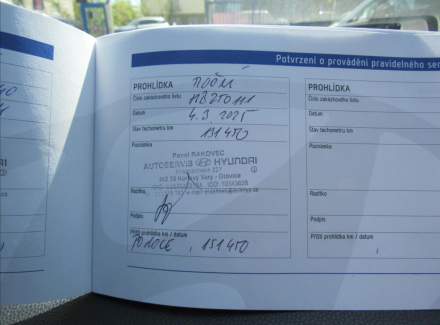 Potvrzení o provádění pravidelného ser
PROHLÍDKA
Číslo zakázkového listu
Datum 4.3 2025
Stav tachometru km 131 450
Poznámka
Pavel RAKOVEC
AUTOSERVIS HYUNDAI
Karlovy Vary
Razítko
Podpis
Příští prohlídka km / datum
PO ROCE , 151 450
PROHLÍDKA
Číslo zakázkového listu
Datum
Stav tachometru km
Poznámka
Razítko
Podpis
Příští prohlídka km / datum